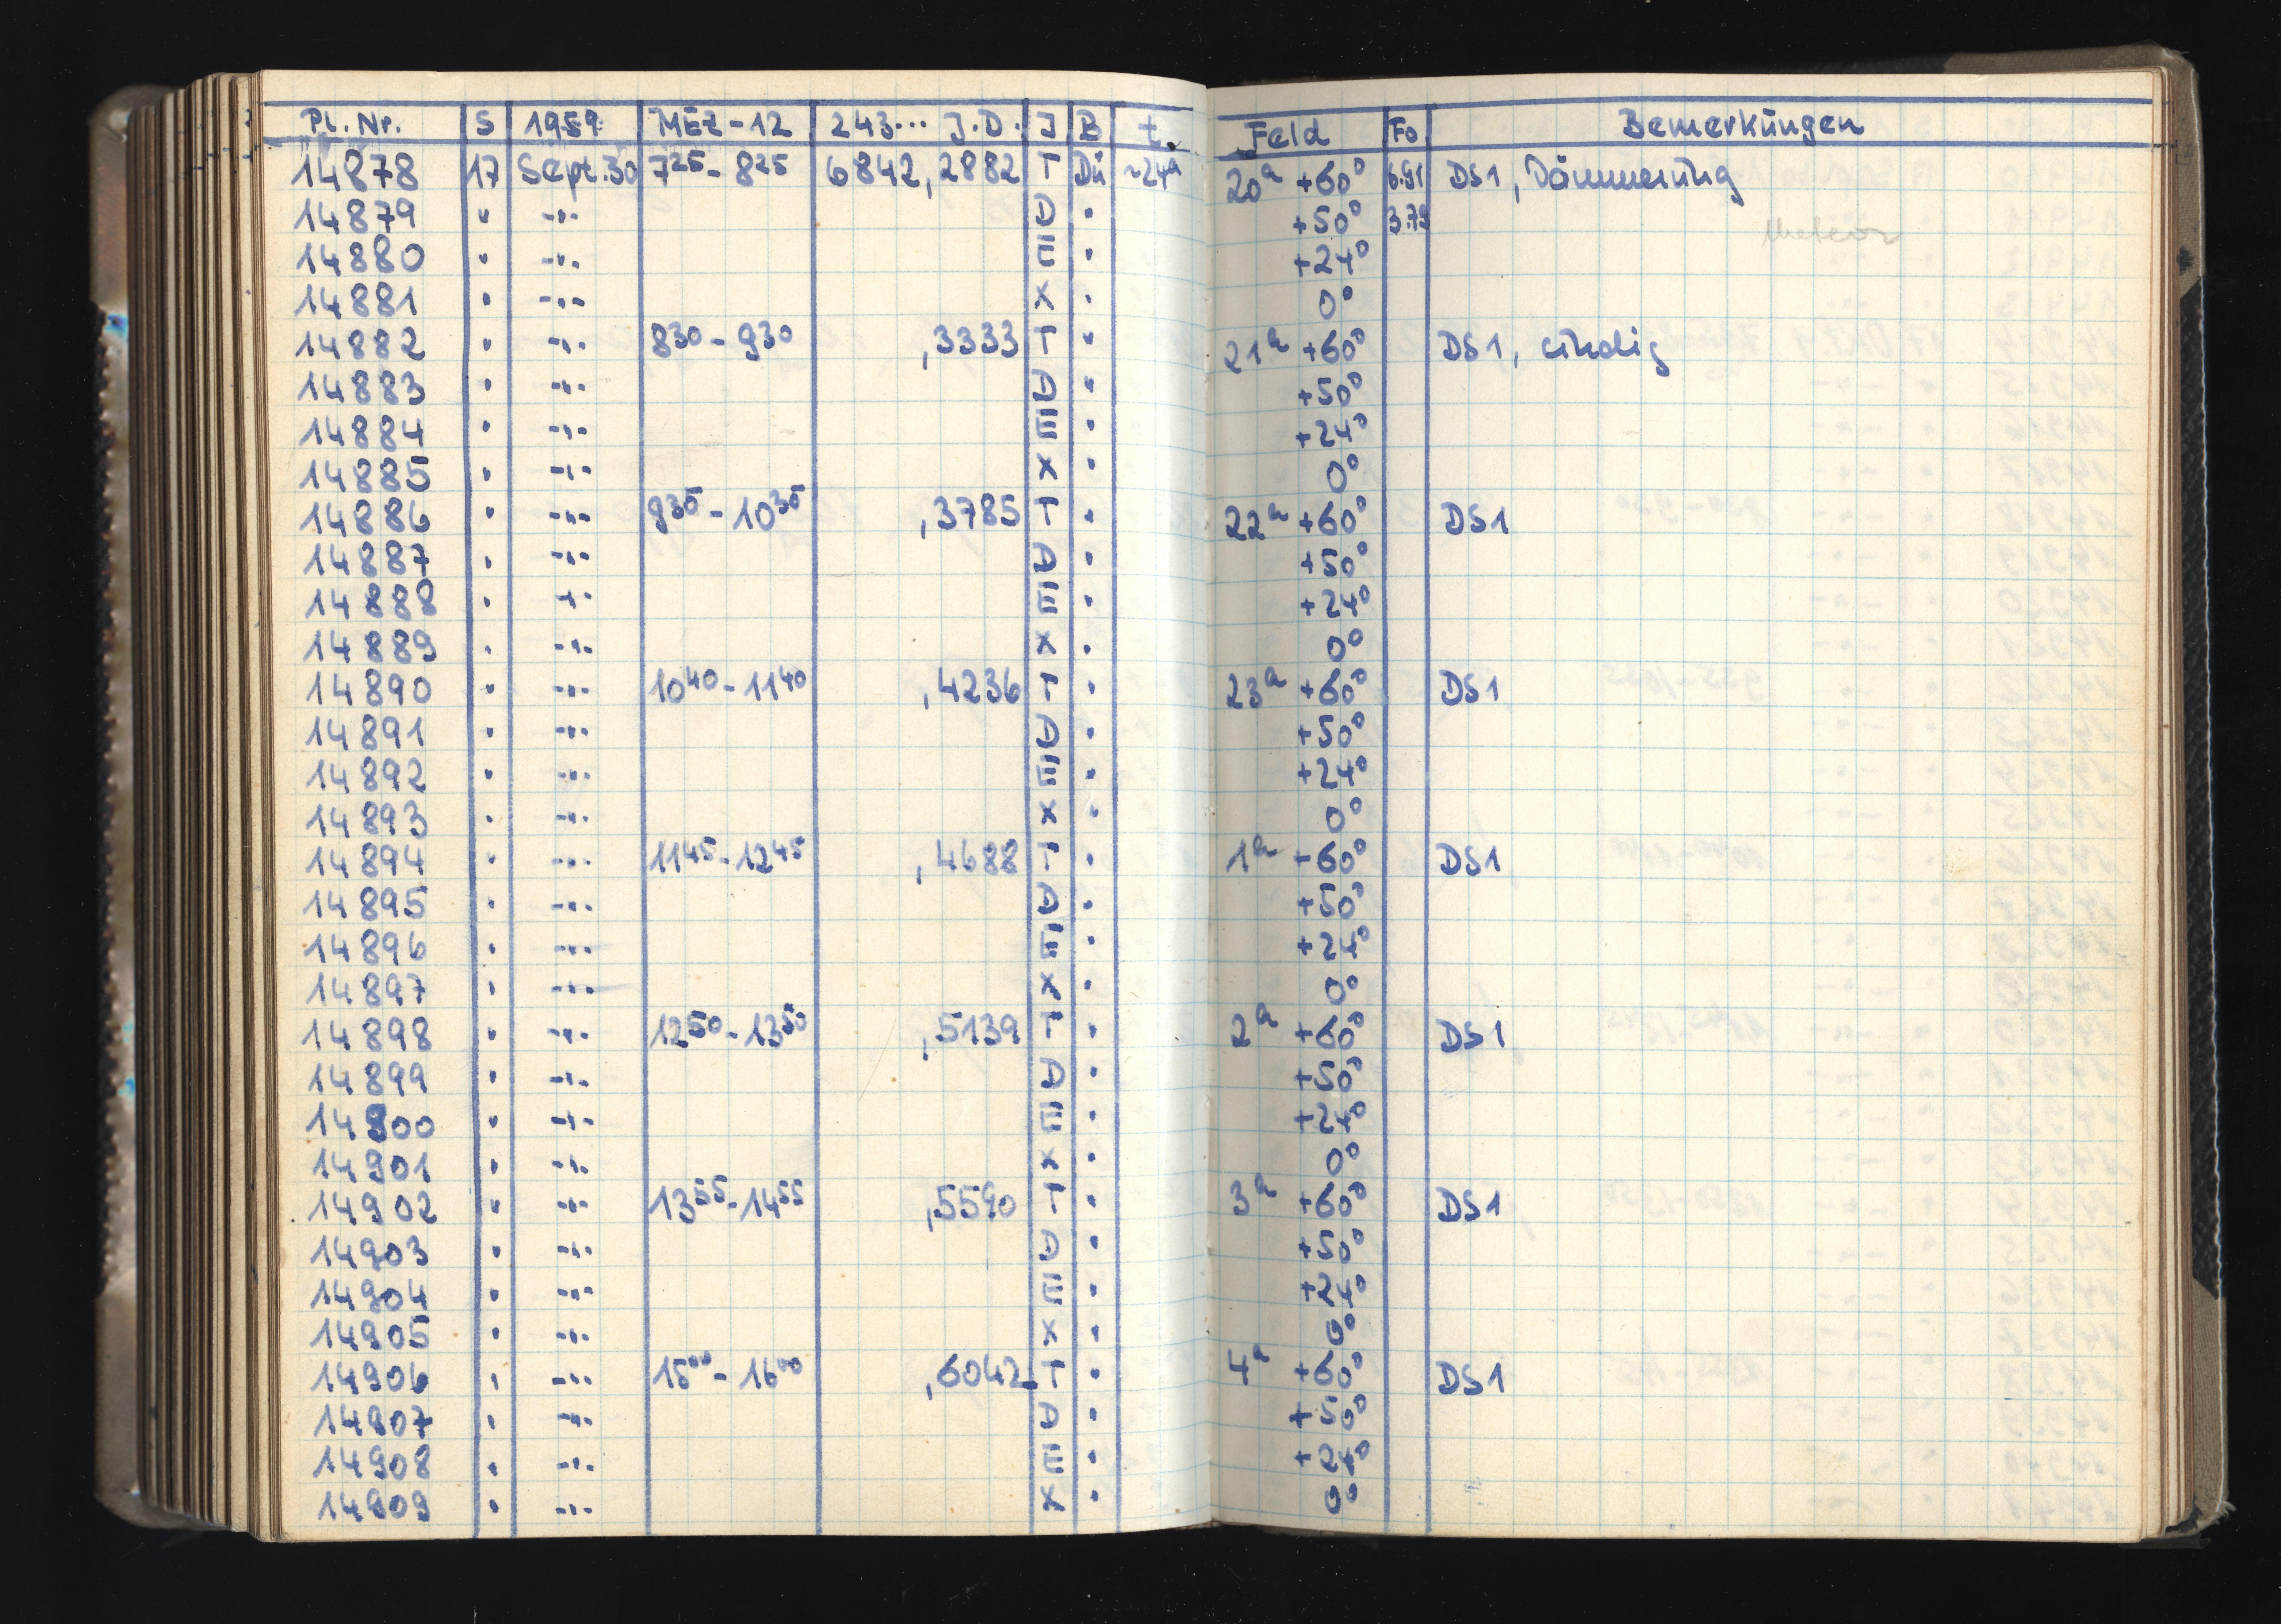 Pl. Nr. S 1959 MEZ-12 243... J.D. J B t. Feld Fo. Bemerkungen
14878 17 Sept. 30 7²⁵ - 8²⁵ 6842,2882 T Dü ~24ᵃ 20ᵃ +60° 6.91 DS1, Dämmerung
14879 " -"- D " +50° 3.79 Meteor
14880 " -"- E " +24°
14881 " -"- X " 0°
14882 " -"- 8³⁰ - 9³⁰ ,3333 T " 21ᵃ +60° DS1, windig
14883 " -"- D " +50°
14884 " -"- E " +24°
14885 " -"- X " 0°
14886 " -"- 9³⁵ - 10³⁵ ,3785 T " 22ᵃ +60° DS1
14887 " -"- D " +50°
14888 " -"- E " +24°
14889 " -"- X " 0°
14890 " -"- 10⁴⁰ - 11⁴⁰ ,4236 T " 23ᵃ +60° DS1
14891 " -"- D " +50°
14892 " -"- E " +24°
14893 " -"- X " 0°
14894 " -"- 11⁴⁵ - 12⁴⁵ ,4688 T " 1ᵃ +60° DS1
14895 " -"- D " +50°
14896 " -"- E " +24°
14897 " -"- X " 0°
14898 " -"- 12⁵⁰ - 13⁵⁰ ,5139 T " 2ᵃ +60° DS1
14899 " -"- D " +50°
14900 " -"- E " +24°
14901 " -"- X " 0°
14902 " -"- 13⁵⁵ - 14⁵⁵ ,5590 T " 3ᵃ +60° DS1
14903 " -"- D " +50°
14904 " -"- E " +24°
14905 " -"- X " 0°
14906 " -"- 15⁰⁰ - 16⁰⁰ ,6042 T " 4ᵃ +60° DS1
14907 " -"- D " +50°
14908 " -"- E " +24°
14909 " -"- X " 0°